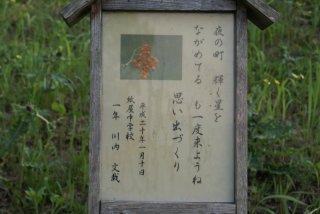 夜の町 輝く星を
ながめてる も一度来ようね
思い出づくり
平成二十年一月十日
紙屋中学校
一年 川内 文哉